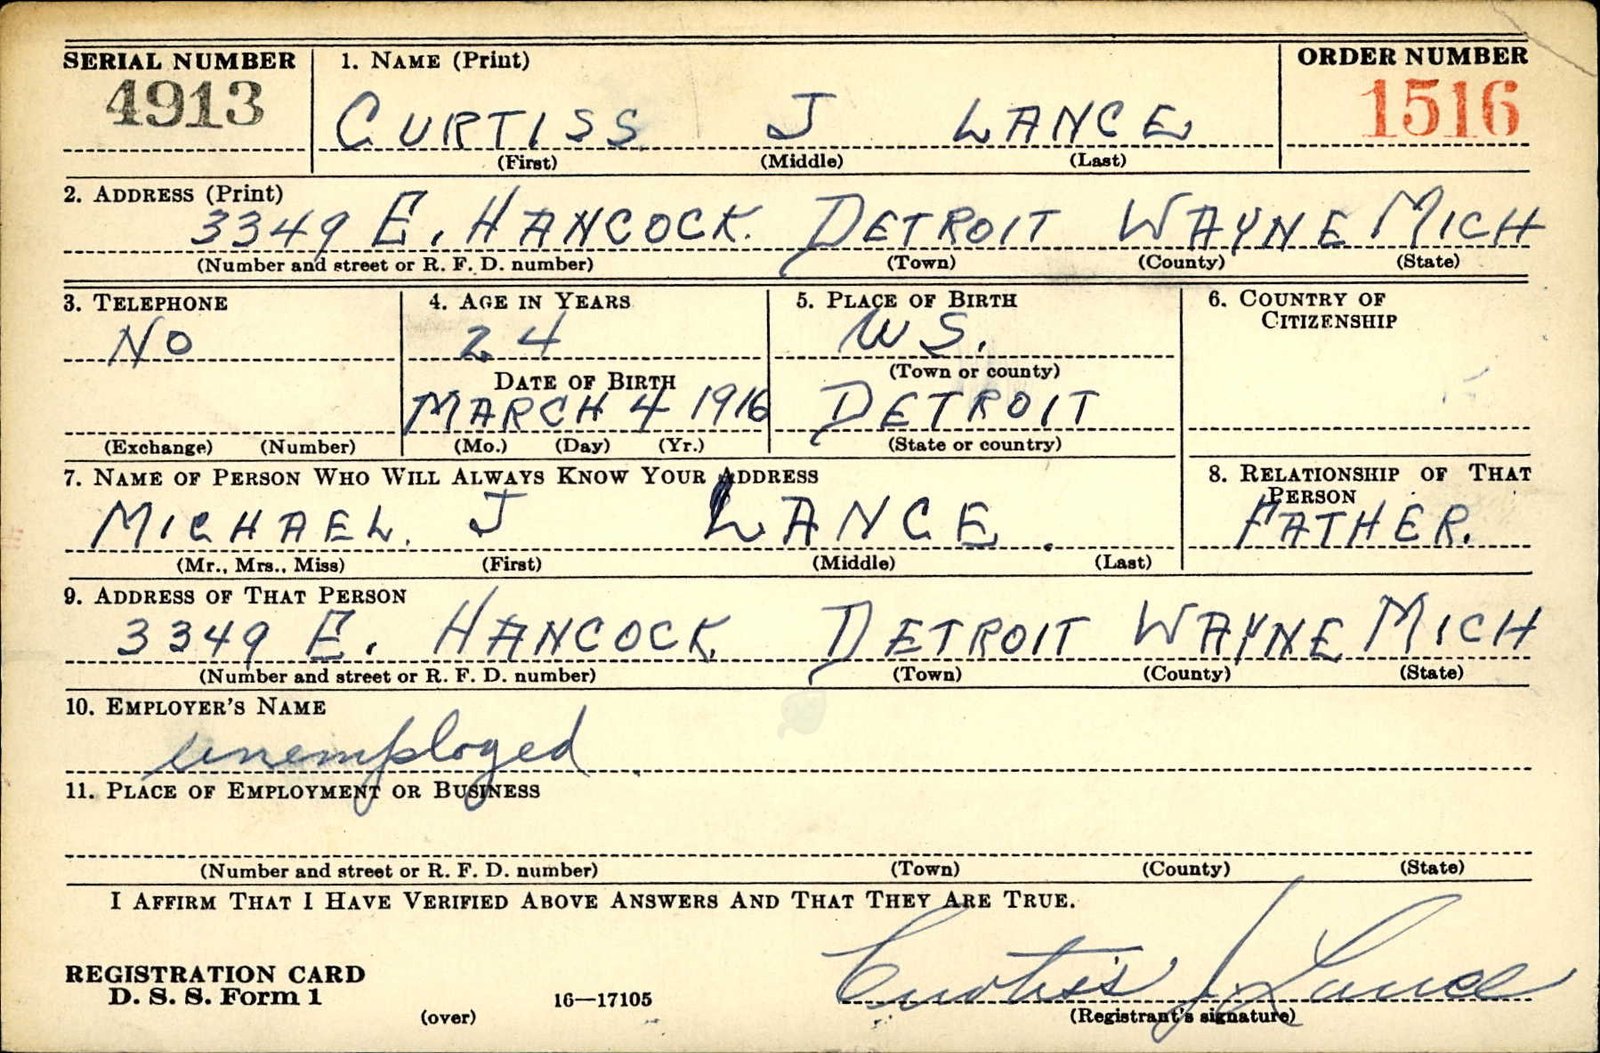 SERIAL NUMBER 1. NAME (Print) ORDER NUMBER
4913 CURTISS J LANCE 1516
(First) (Middle) (Last)
2. ADDRESS (Print)
3349 E. HANCOCK. DETROIT WAYNE MICH
(Number and street or R. F. D. number) (Town) (County) (State)
3. TELEPHONE 4. AGE IN YEARS 5. PLACE OF BIRTH 6. COUNTRY OF
CITIZENSHIP
NO 24 U S.
(Town or county)
DATE OF BIRTH
MARCH 4 1916 DETROIT
(Exchange) (Number) (Mo.) (Day) (Yr.) (State or country)
7. NAME OF PERSON WHO WILL ALWAYS KNOW YOUR ADDRESS 8. RELATIONSHIP OF THAT
PERSON
MICHAEL. J LANCE. FATHER.
(Mr., Mrs., Miss) (First) (Middle) (Last)
9. ADDRESS OF THAT PERSON
3349 E. HANCOCK. DETROIT WAYNE MICH
(Number and street or R. F. D. number) (Town) (County) (State)
10. EMPLOYER'S NAME
unemployed
11. PLACE OF EMPLOYMENT OR BUSINESS
(Number and street or R. F. D. number) (Town) (County) (State)
I AFFIRM THAT I HAVE VERIFIED ABOVE ANSWERS AND THAT THEY ARE TRUE.
REGISTRATION CARD Curtiss J Lance
D. S. S. Form 1 16—17105
(over) (Registrant's signature)